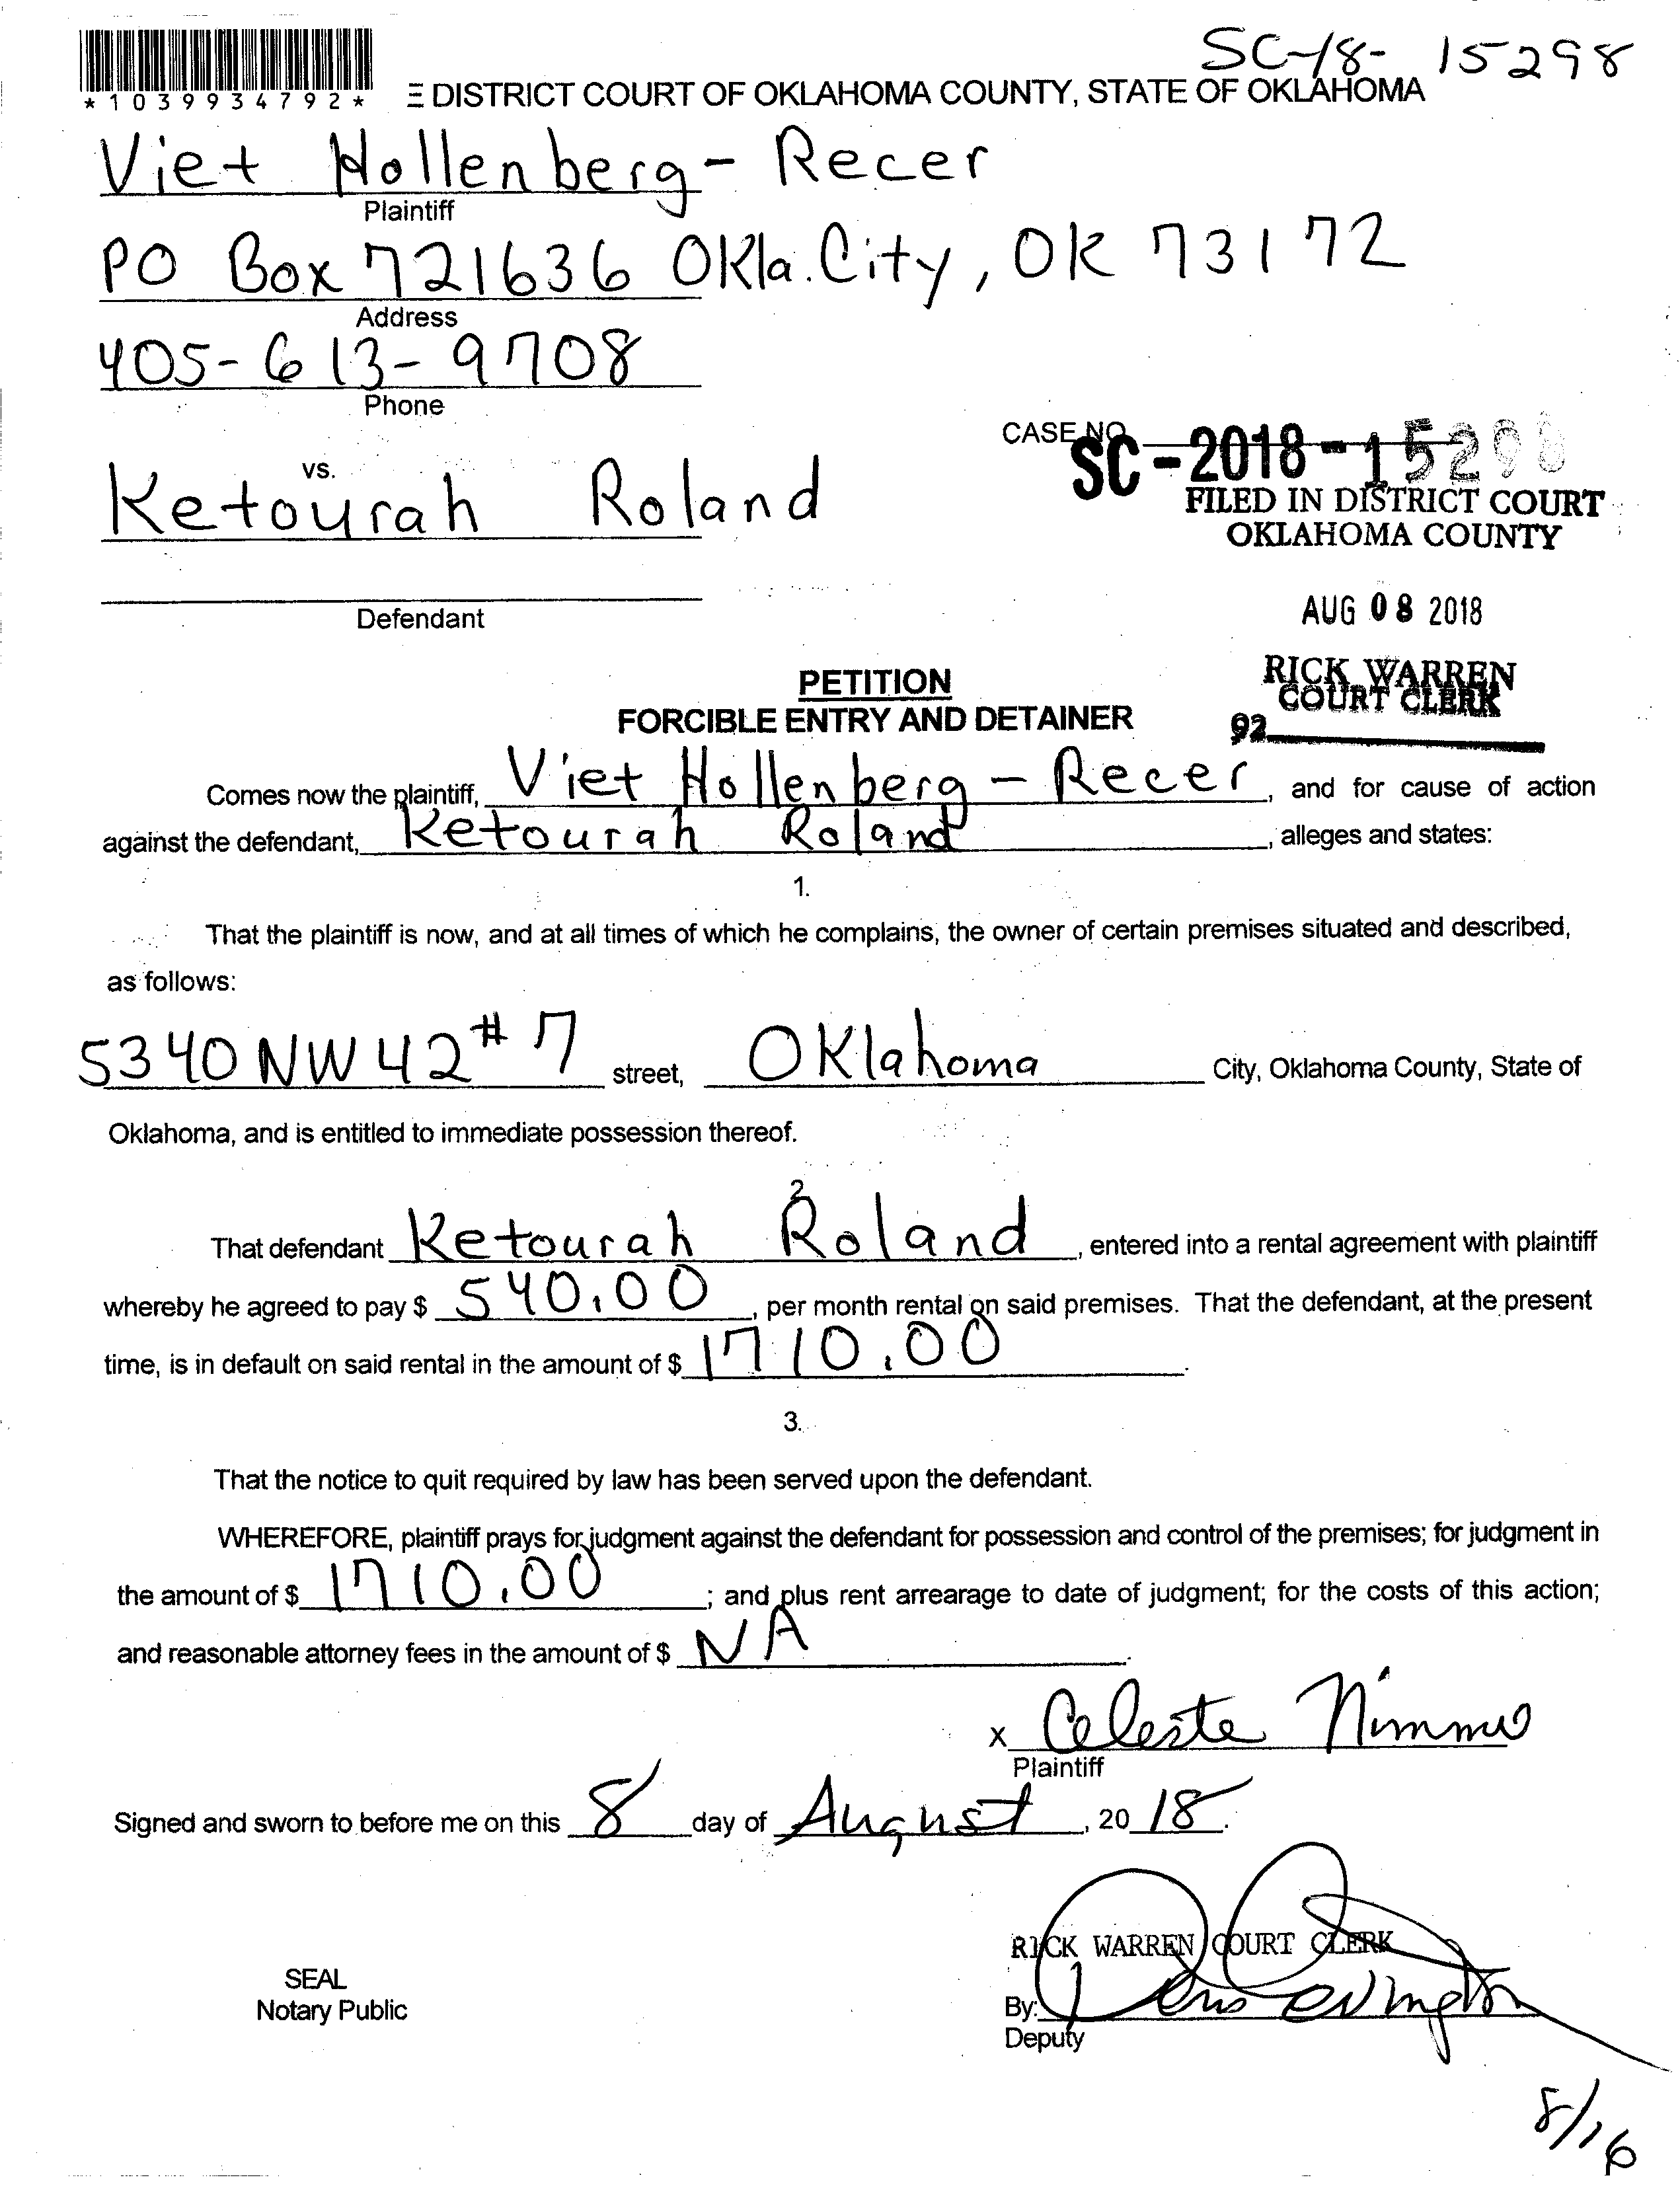 SC-18- 15298
*1039934792*
E DISTRICT COURT OF OKLAHOMA COUNTY, STATE OF OKLAHOMA
Viet Hollenberg - Recer
Plaintiff
PO Box 721636 Okla. City, OK 73172
Address
405-613-9708
Phone
CASE NO.
SC-2018-15298
vs.
Ketourah Roland
FILED IN DISTRICT COURT
OKLAHOMA COUNTY
Defendant
AUG 08 2018
PETITION
RICK WARREN
COURT CLERK
FORCIBLE ENTRY AND DETAINER
92
Comes now the plaintiff, Viet Hollenberg - Recer, and for cause of action
against the defendant, Ketourah Roland, alleges and states:
1.
That the plaintiff is now, and at all times of which he complains, the owner of certain premises situated and described,
as follows:
5340 NW 42 # 7 street, Oklahoma City, Oklahoma County, State of
Oklahoma, and is entitled to immediate possession thereof.
2
That defendant Ketourah Roland, entered into a rental agreement with plaintiff
whereby he agreed to pay $ 540.00, per month rental on said premises. That the defendant, at the present
time, is in default on said rental in the amount of $ 1710.00.
3.
That the notice to quit required by law has been served upon the defendant.
WHEREFORE, plaintiff prays for judgment against the defendant for possession and control of the premises; for judgment in
the amount of $ 1710.00; and plus rent arrearage to date of judgment; for the costs of this action;
and reasonable attorney fees in the amount of $ NA.
x Celeste Nimmo
Plaintiff
Signed and sworn to before me on this 8 day of August, 20 18.
RICK WARREN COURT CLERK
SEAL
Notary Public
By:
Deputy
8/16